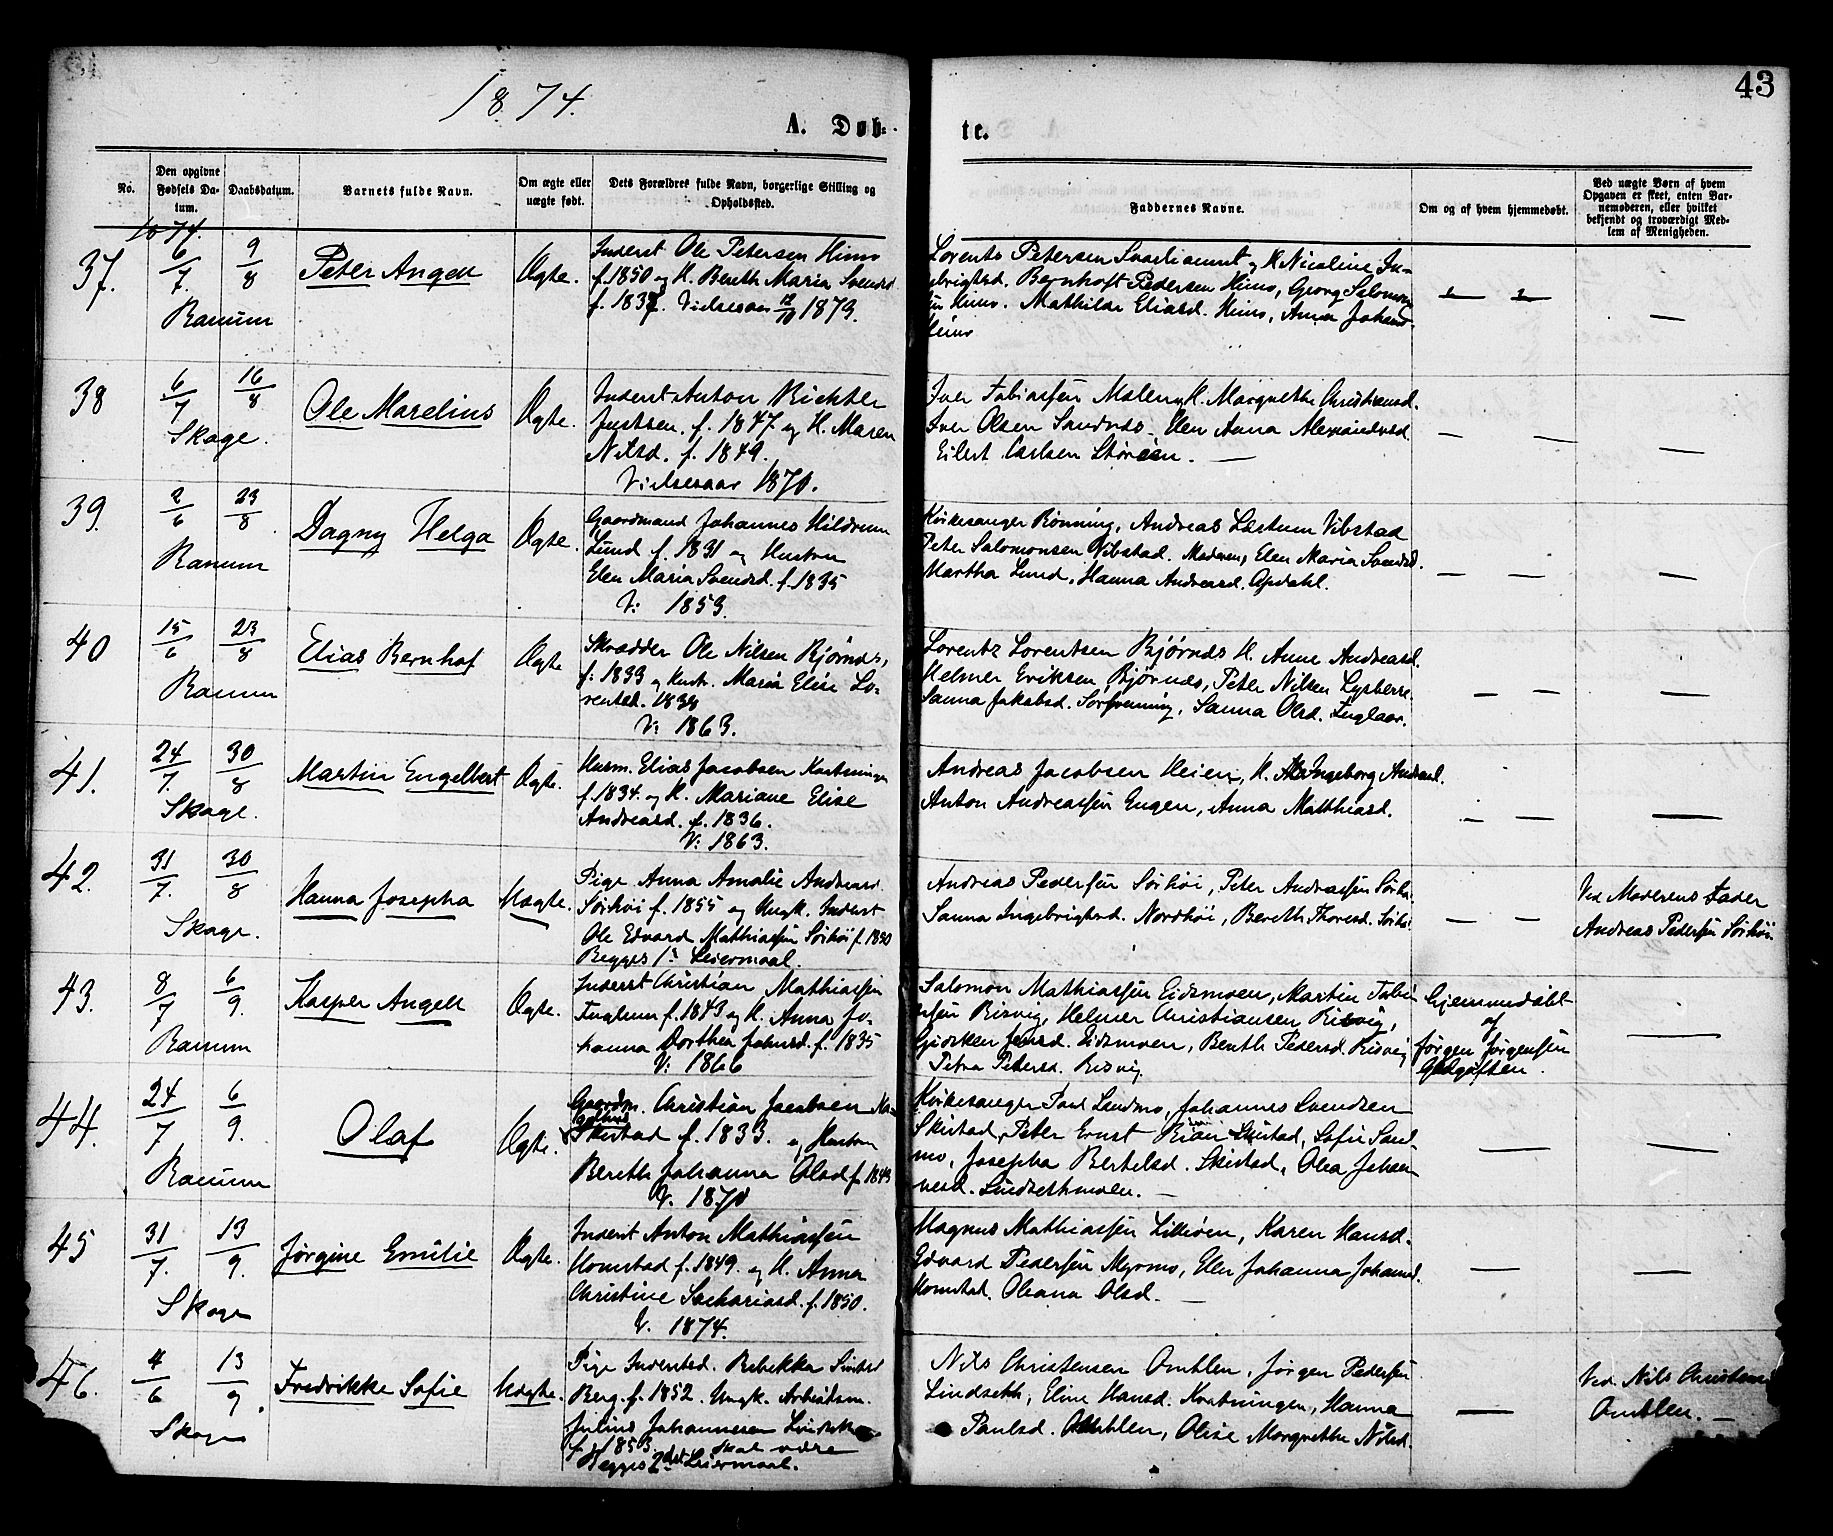 43
1874.
A. Døb-
te.
No.
Den opgivne Fødsels Datum.
Daabsdatum.
Barnets fulde Navn.
Om ægte eller uægte født.
Dets Forældres fulde Navn, borgerlige Stilling og Opholdssted.
Faddernes Navne.
Om og af hvem hjemmedøbt.
Ved uægte Børn af hvem Opgaven er skeet, enten Barnemoderen, eller hvilket bekjendt og troværdigt Medlem af Menigheden.
1874.
37. 6/7. 9/8 Peter Angell Ægte.
Ranum
Inderst Ole Petersen Himo
f. 1850 og H. Bereth Maria Svendsd.
f. 1837. Vielsesaar 12/10 1873.
Lorents Petersen H. Nicoline In-
gebrigtsd. Bernhoft Pedersen Himo, Georg Salomon-
sen Himo. Mathilde Eliasd. Himo, Anna Johansd.
Himo
38 6/7 16/8 Ole Marelius Ægte.
Skage.
Inderst Anton Richter
Justsen. f. 1847 og H. Maren
Nilsd. f. 1849.
Vielsesaar 1870.
Iver Tobiassen Malen, H. Margrethe Christiansd.
Iver Olsen Sandnes, Elen Anna Alexandersd.
Eilert Carlsen Støreen. —
39. 2/6 23/8 Dagny Helga Ægte.
Ranum
Gaardmand Johannes Hildrum
Lund f. 1831 og Hustru
Elen Maria Svendsd. f. 1835
V: 1853.
Kirkesanger Rønning, Andreas Læstum Vibstad
Peter Salomonsen Vibstad. Moderen, Elen Maria Svendsd.
Martha Lund, Hanna Andreasd. Opdahl.
40 15/6 23/8 Elias Bernhof Ægte
Ranum
Skrædder Ole Nilsen Bjørnes,
f. 1833 og Hustr. Maria Elise Lo-
rentsd. 1838
V: 1863.
Lorentz Lorentsen Bjørnes H. Anne Andreasd.
Helmer Eriksen Bjørnes, Peter Nilsen
Sanna Jakobsd. Sanna Olsd.
41. 24/7. 30/8 Martin Engelbert Ægte.
Skage.
Husm. Elias Jacobsen
f. 1834. og H. Mariane Elise
Andreasd. f. 1836.
V: 1863.
Andreas Jacobsen Heien, H. Ingeborg Andreasd.
Anton Andreassen Engen, Anna Matthiasd.
42. 31/7. 30/8 Hanna Josepha Uægte.
Skage.
Pige Anna Amalie Andreasd.
Sørhøi f. 1855 og Ungk. Inderst
Ole Edvard Mathiassen Sørhøi f. 1850
Begges 1ste Leiermaal.
Andreas Pedersen Sørhøi, Peter Andreassen Sørhøi
Sanna Ingebrigtsd. Nordhøi, Bereth Thoresd. Sørhøi
Ved Moderens Fader
Andreas Pedersen Sørhøi.
43. 8/7 6/9. Kasper Angell Ægte.
Ranum
Inderst Christian Mathiassen
f. 1843 og H. Anna Jo-
hanna Dorthea Johnsd. f. 1835
V: 1866
Salomon Mathiassen Eidsmoen, Martin Tobi-
assen Risvig, Helmer Christiansen Risvig,
Gjertken Jensd. Eidsmoen, Bereth Pedersd. Risvig
Petra Petersd. Risvig.
Hjemmedøbt
af
Jørgen Jørgensen
44. 24/7 6/9. Olaf Ægte.
Ranum
Gaardm. Christian Jacobsen
Skistad f. 1833. og Hustru
Bereth Johanna Olsd f. 1849
V. 1870
Kirkesanger Paul Sandmo, Johannes Svendsen
Skistad, Peter Ernst Skistad, Sofie Sand-
mo, Josepha Bertelsd. Skistad, Olea Johan-
nesd. Lindsethmoen. —
45 31/7. 13/9. Jørgine Emilie Ægte.
Skage
Inderst Anton Mathiassen
Homstad f. 1849. og H. Anna
Christine Sachariasd. f. 1850.
V. 1874.
Magnus Mathiassen Karen Hansd.
Edvard Pedersen Myrmo, Elen Johanna Johansd.
Homstad. Oleana Olsd. —
46. 4/6 13/9. Fredrikke Sofie Uægte.
Skage
Pige Inderstd. Rebekka
Berg. f. 1852. Ungk. Arbeidsm.
Julius Johannesen
f. 1853 skal være
Begges 2det Leiermaal.
Nils Christensen Amtlen. Jørgen Pedersen
Lindseth, Eline Hansd. Hanna
Paulsd. Amtlen, Olise Margrethe Nilsd.
Ved Nils Christensen
Amtlen. —